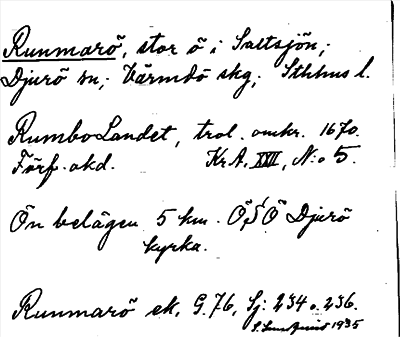 Runmarö, stor ö i Saltsjön,;
Djurö sn,; Värmdö skg,; Sthlms l.
RumboLandet, trol. omkr. 1670.
Förf. okd. Kr.A. XXII, N:o 5.
Ön belägen 5 km. ÖSÖ Djurö
kyrka.
Runmarö ek, G.76, Sj: 234 o. 236.
1935